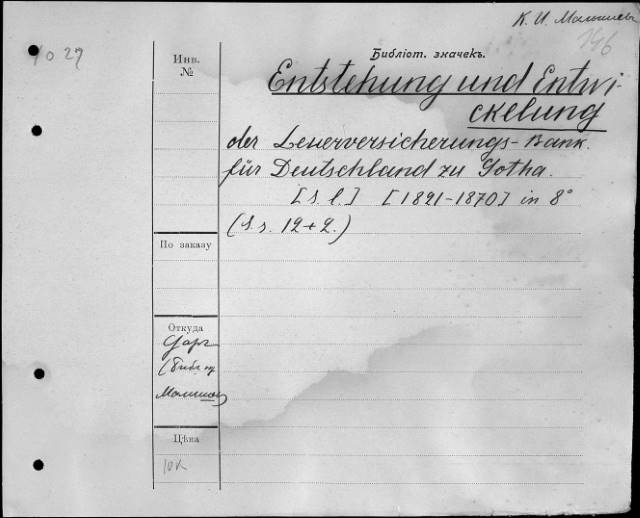 К. И. Малышевъ
146
1027
Инв.
№
Библіот. значекъ.
Entstehung und Entwi-
ckelung
der Leuerversicherungs-Bank.
für Deutschland zu Gotha.
[s. l.] [1821-1870] in 8°
(S.s. 12+2.)
По заказу
Откуда
Даръ
(Библ.
Малыш
Цѣна
10к